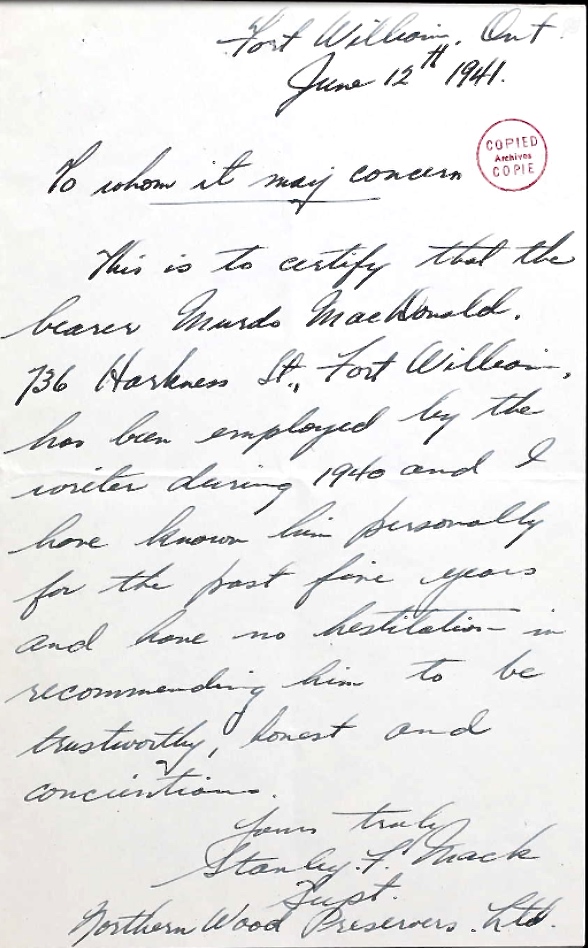 Fort William, Ont.
June 12th 1941.
COPIED
Archives
COPIE
To whom it may concern
This is to certify that the
bearer Murdo MacDonald.
736 Harkness St., Fort William,
has been employed by the
writer during 1940 and I
have known him personally
for the past five years
and have no hestitation in
recommending him to be
trustworthy, honest and
concientious.
Yours truly
Stanley. F. Mack
Supt.
Northern Wood Preservers. Ltd.